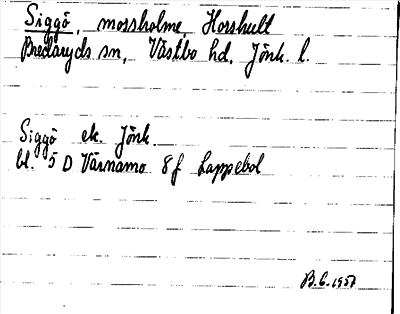 Siggö, mossholme, Horshult
Bredaryds sn, Västbo hd, Jönk. l.
Siggö ek. Jönk.
bl. 5 D Värnamo 8 f Lappebol
B.E. 1957